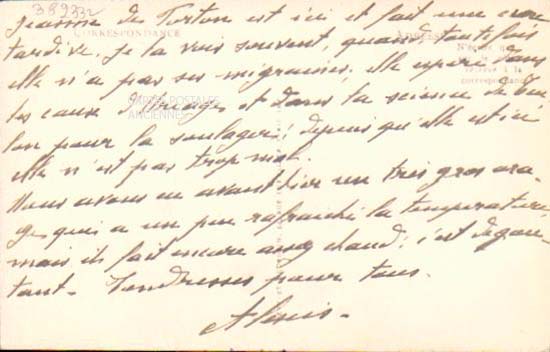 389332
Jeanne de Torton est ici et fait une cure
tardive. Je la vois souvent, quand toutefois
CORRESPONDANCE
elle n'a pas ses migraines. Elle espère dans
les eaux d'Uriage et dans la science de
CARTES POSTALES
ANCIENNES
pour la soulager ; depuis qu'elle est ici
elle n'est pas trop mal.
Nous avons eu avant hier un très gros ora-
ge qui a un peu rafraîchi la température,
mais il fait encore assez chaud ; c'est dégou-
tant - Tendresses pour tous.
Alexis -